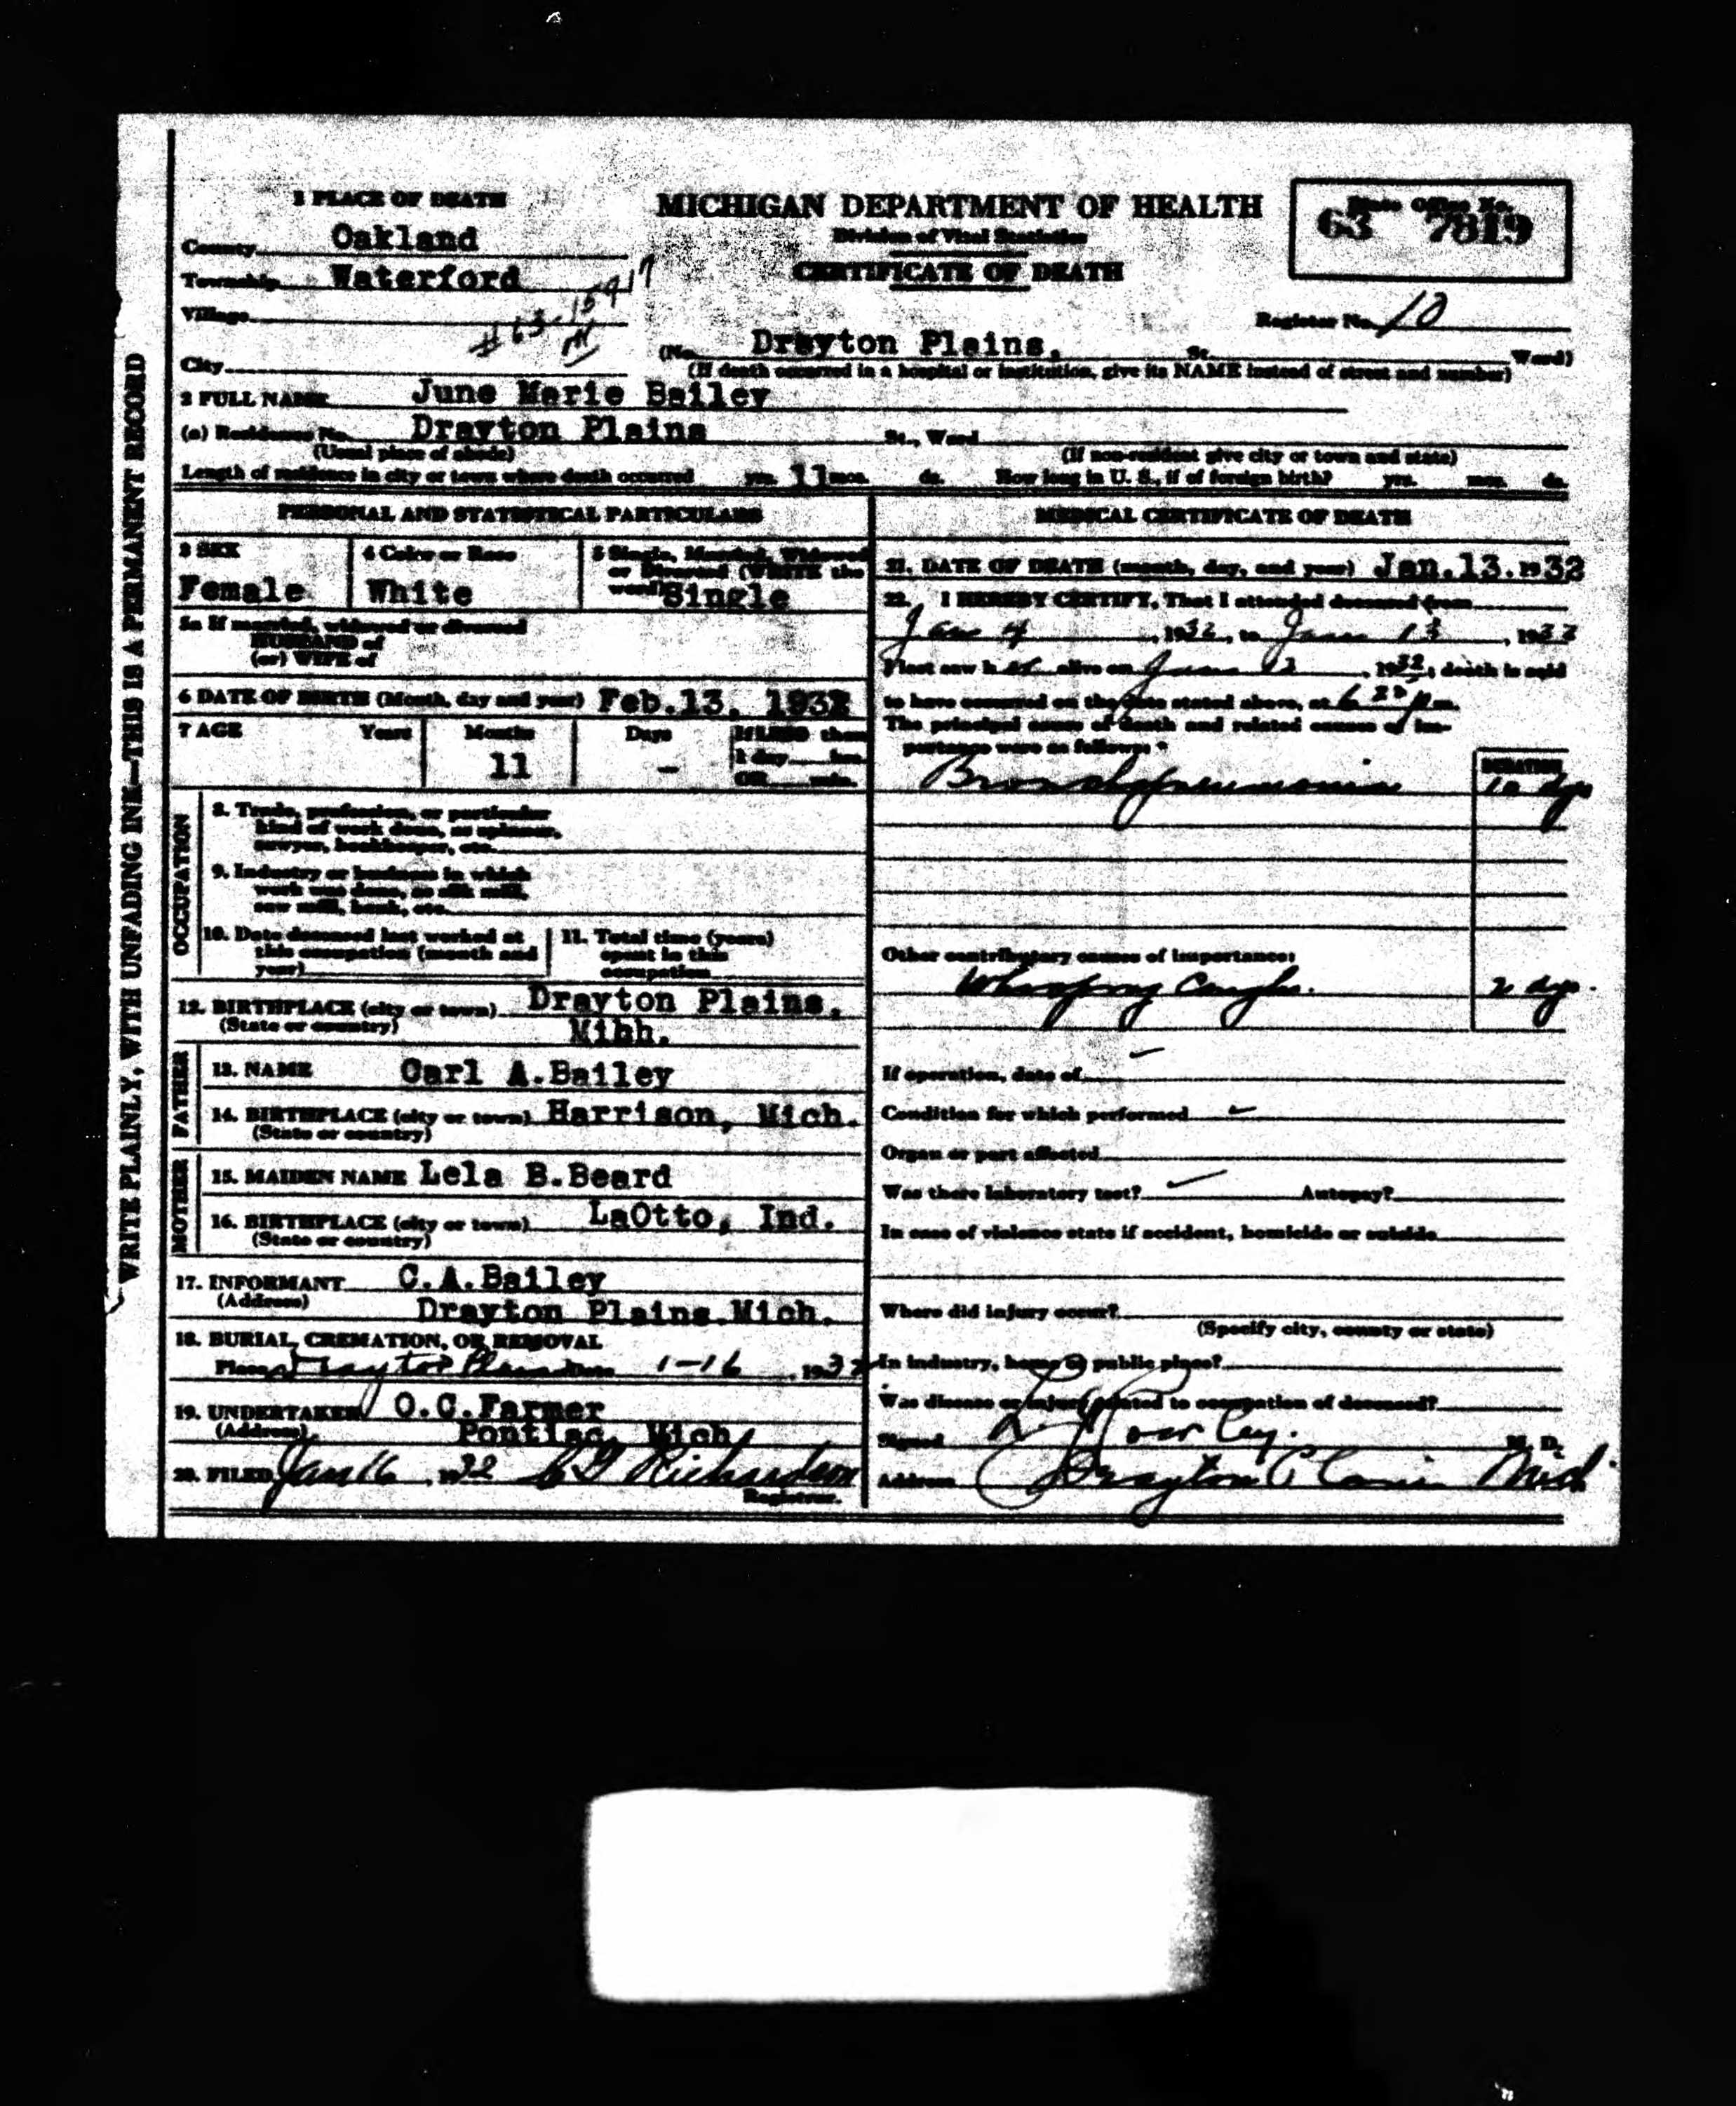 1 PLACE OF DEATH
County Oakland
Township Waterford
Village
City
#63-15917
MICHIGAN DEPARTMENT OF HEALTH
Division of Vital Statistics
CERTIFICATE OF DEATH
State Office No.
63 7819
Register No. 10
(No. Drayton Plains. St. Ward)
(If death occurred in a hospital or institution, give its NAME instead of street and number)
2 FULL NAME June Marie Bailey
(a) Residence No. Drayton Plains St., Ward
(Usual place of abode) (If non-resident give city or town and state)
Length of residence in city or town where death occurred yrs. 11 mos. ds. How long in U. S., if of foreign birth? yrs. mos. ds.
PERSONAL AND STATISTICAL PARTICULARS
3 SEX
Female
4 Color or Race
White
5 Single, Married, Widowed
or Divorced (WRITE the
word) Single
5a If married, widowed or divorced
HUSBAND of
(or) WIFE of
6 DATE OF BIRTH (Month, day and year) Feb.13, 193
7 AGE Years Months Days If LESS than
1 day hrs.
OR min.
11 -
OCCUPATION
8. Trade, profession, or particular
kind of work done, as spinner,
sawyer, bookkeeper, etc.
9. Industry or business in which
work was done, as silk mill,
saw mill, bank, etc.
10. Date deceased last worked at
this occupation (month and
year)
11. Total time (years)
spent in this
occupation
12. BIRTHPLACE (city or town) Drayton Plains.
(State or country) Mihh.
FATHER
13. NAME Carl A.Bailey
14. BIRTHPLACE (city or town) Harrison, Mich.
(State or country)
MOTHER
15. MAIDEN NAME Lela B.Beard
16. BIRTHPLACE (city or town) LaOtto, Ind.
(State or country)
17. INFORMANT C.A.Bailey
(Address) Drayton Plains.Mich.
18. BURIAL, CREMATION, OR REMOVAL
Place Drayton Plains Date 1-16, 1932
19. UNDERTAKER O.C.Farmer
(Address) Pontiac, Mich
20. FILED Jan 16, 1932 Richardson
Registrar.
MEDICAL CERTIFICATE OF DEATH
21. DATE OF DEATH (month, day, and year) Jan.13.1932
22. I HEREBY CERTIFY, That I attended deceased from
Jan 4, 1932, to Jan 13, 1932
I last saw her alive on Jan 12, 1932, death is said
to have occurred on the date stated above, at 6 p m.
The principal cause of death and related causes of im-
portance were as follows: *
DURATION
Bronchopneumonia 10 dys
Other contributory causes of importance:
Whooping Cough. dys.
If operation, date of
Condition for which performed
Organ or part affected
Was there laboratory test? Autopsy?
In case of violence state if accident, homicide or suicide
Where did injury occur?
(Specify city, county or state)
In industry, home or public place?
Was disease or injury related to occupation of deceased?
Signed M. D.
Address Drayton Plains Mich
WRITE PLAINLY, WITH UNFADING INK—THIS IS A PERMANENT RECORD